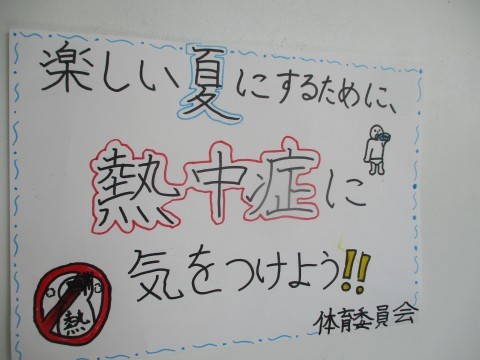 楽しい夏にするために、
熱中症に
気をつけよう!!
熱
体育委員会